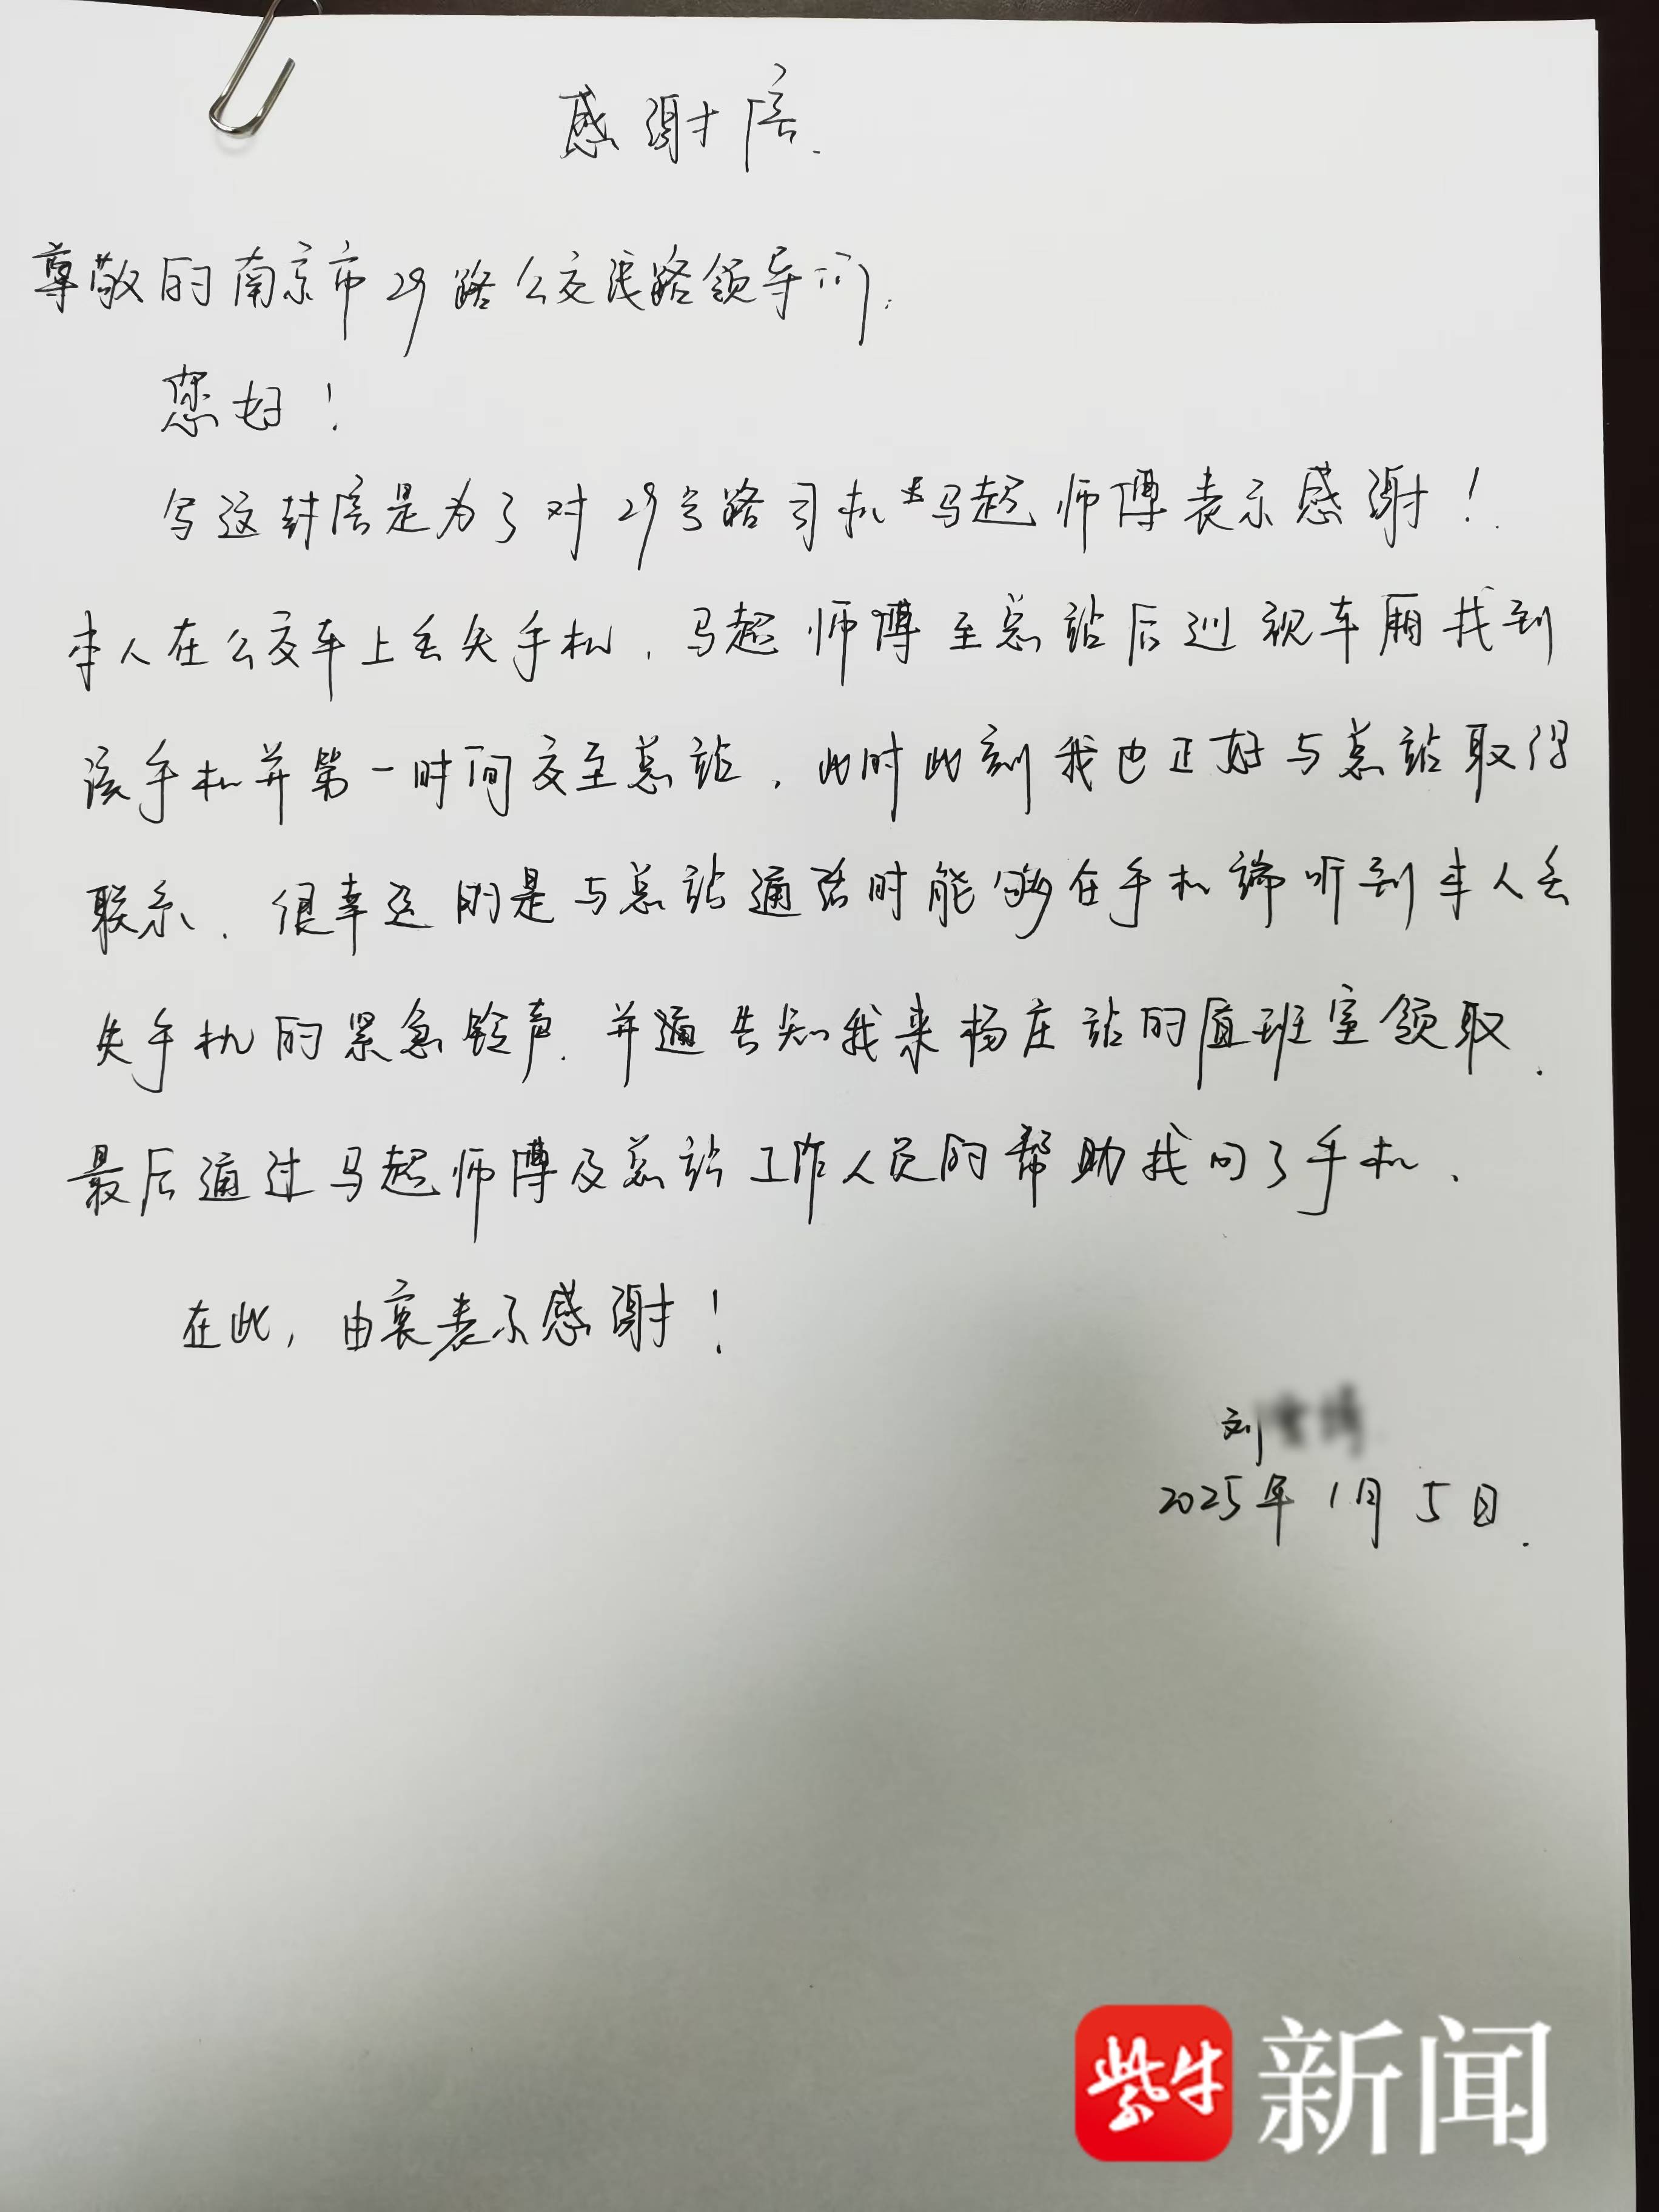 感谢信.
尊敬的南京市29路公交线路领导们:
您好！
写这封信是为了对29号路司机马超师傅表示感谢！
本人在公交车上丢失手机，马超师傅至总站后巡视车厢找到
该手机并第一时间交至总站，此时此刻我也正好与总站取得
联系．很幸运的是与总站通话时能够在手机端听到本人丢
失手机的紧急铃声．并通告知我来杨庄站的值班室领取．
最后通过马超师傅及总站工作人员的帮助找回了手机．
在此，由衷表示感谢！
刘
2025年1月5日．
紫牛新闻